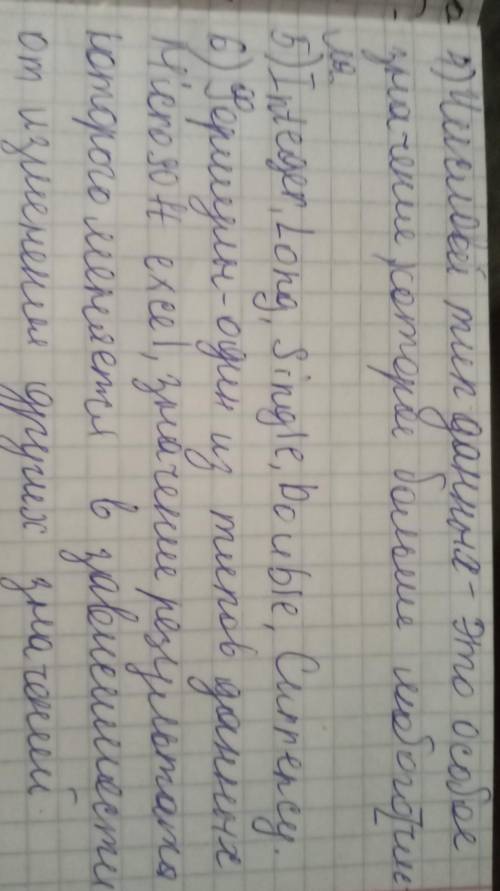 4) Числовой тип данных - это особое
значение, которое больше любого чи
ла.
5) Integer, Long, Single, Double, Currency.
6) Формулы - один из типов данных
Microsoft excel, значение результата
которого меняется в зависимости
от изменения других значений.